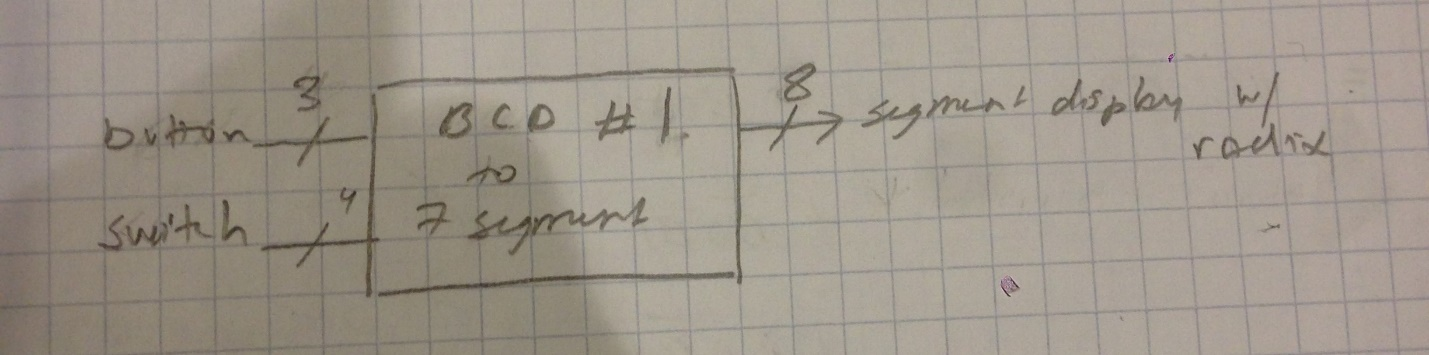 3
button
4
switch
BCD #1.
to
7 segment
8
segment display w/
radix